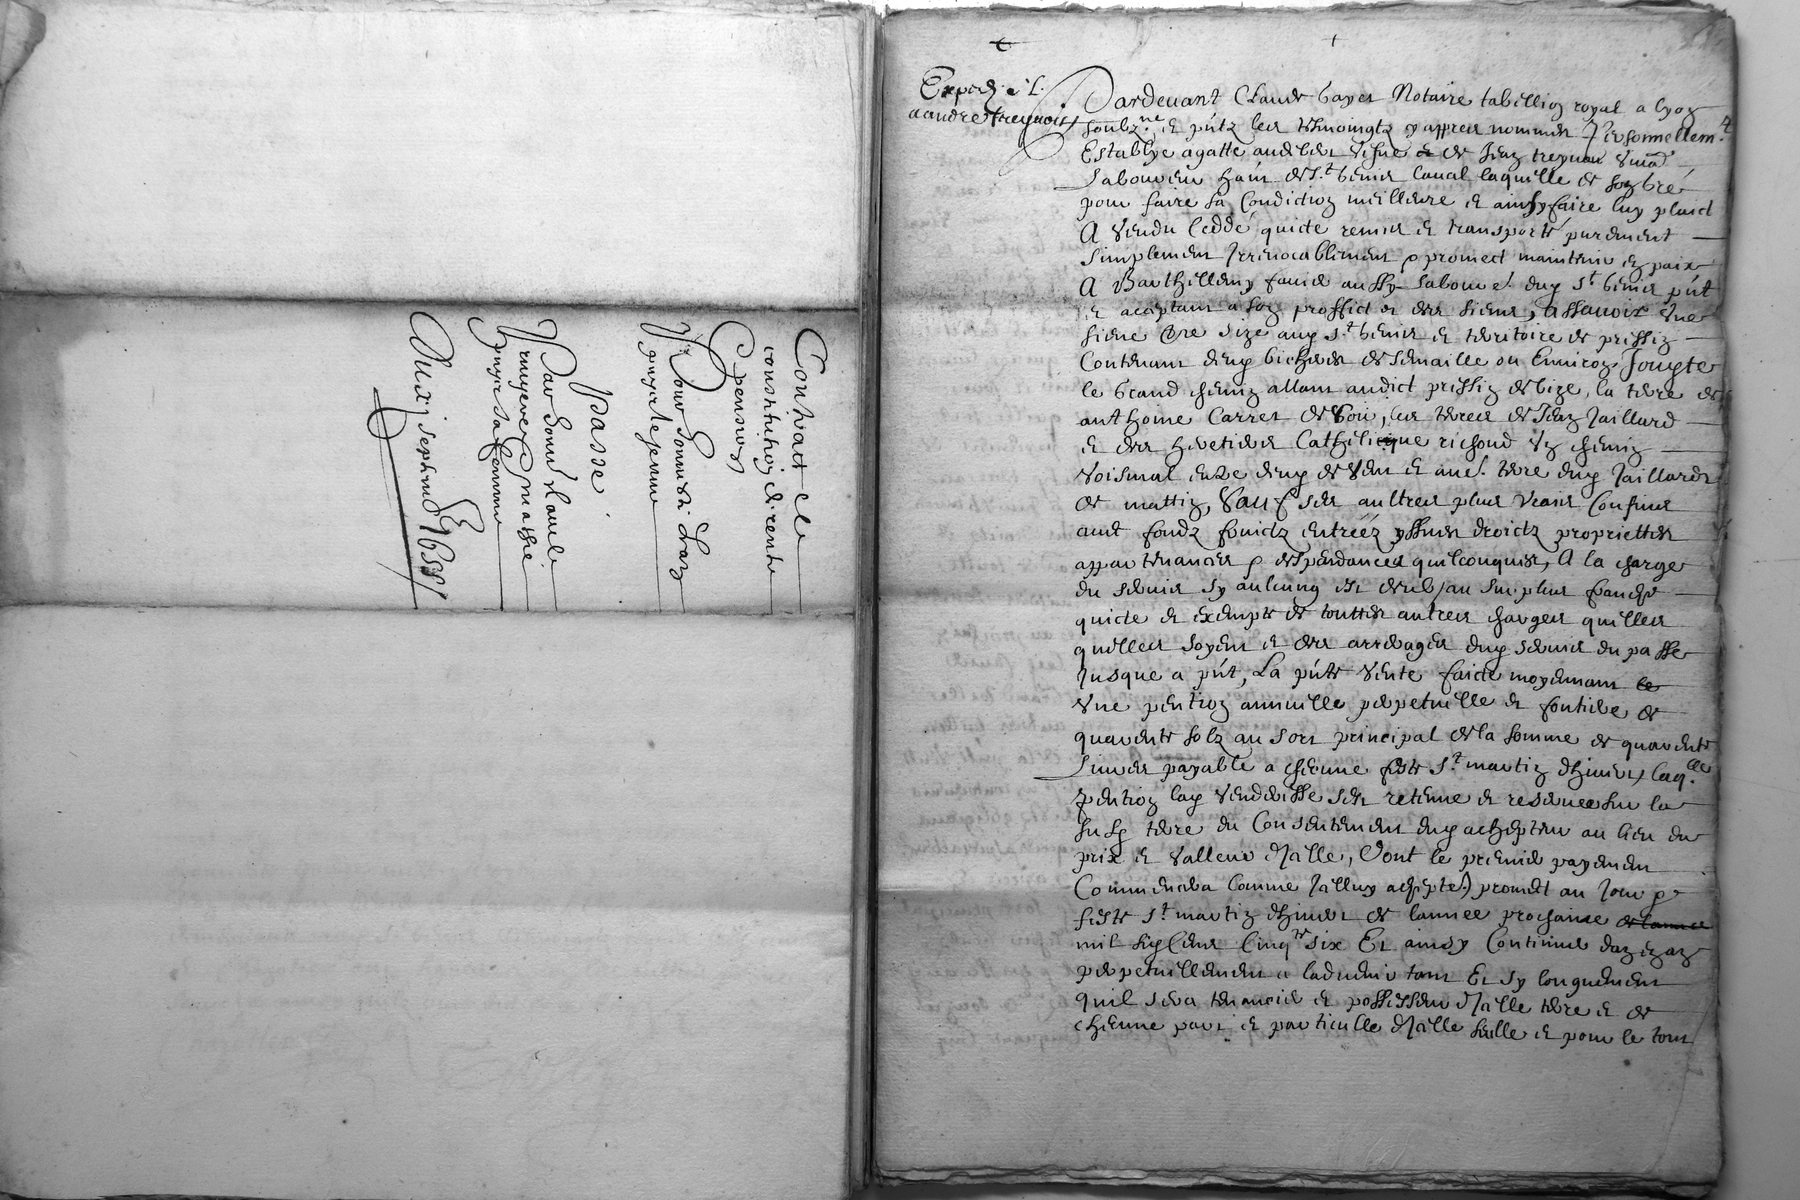 Contract de
constitution de rente
& pension
Pour honneste Jean
guyot le jeune
Passé
Par honn. Claude
& mathie
guyot sa femme
Du xj septemb. 1655
Exped. à l.
a andre treynoit
Pardeuant Claude bayet Notaire tabellion royal a lyon
soubz.ne et pñtz les tesmoingtz y appres nommes Personnellem.t
Establye agatte vefue de Jean treynau viuãt
Laboureur hãnt de S.t Genis laual laquelle de son gré
pour faire sa Condiction meilleure et ainsy faire luy plaict
A vendu ceddé quicte remis et transporté purement
simplement Irreuocablement & promect maintenir en paix
A Barthellemy faure aussy Laboure.r dud S.t Genis pñt
et acceptant a son proffict et des siens, Assauoir vne
sienne size aud S.t Genis et territoire de pressin
Contenant deux bicherees de semaille ou Enuiron Jouxte
le Grand chemin allant audict pressin de bize, la terre de
anthoine Carret de soir, les terres de Jean Jaillard
et des heretiers Catherine richoud vn chemin
voisinal entre deux de vent et aul. terre dud Jaillard
de mattin, Sauf ses aultres plus vrais Confins
auec fondz fruictz entrées yssues droictz propriettes
appartenances & despendances quelconques, A la charge
du seruis sy aulcung est deub, au surplus franche
quicte et exempte de touttes autres charges quelles
quelles soyent et des arrerages dud seruis du passe
Jusque a pñt, La pñte vente faicte moyennant le
vne pention annuelle perpetuelle et fontiere de
quarente solz au sort principal de la somme de quarente
Liures payable a chenne feste S.t martin dhiuer, laq.lle
pention lad venderesse sest retenue et reseruee sur la
susd terre du Consentement dud achepteur au lieu du
prix et valleur dJcelle, Dont le premier payement
Commencera Comme Jcelluy achepte.r promect au Jour &
feste S.t martin dhiuer de lannee prochaine de lannee
mil six Cens Cinq.te six Et ainsy Continuer dan en an
perpetuellement a laduenir tant Et sy longuement
quil sera tenancier et possesseur dJcelle terre et de
chenne part et particulle dJcelle seulle et pour le tout